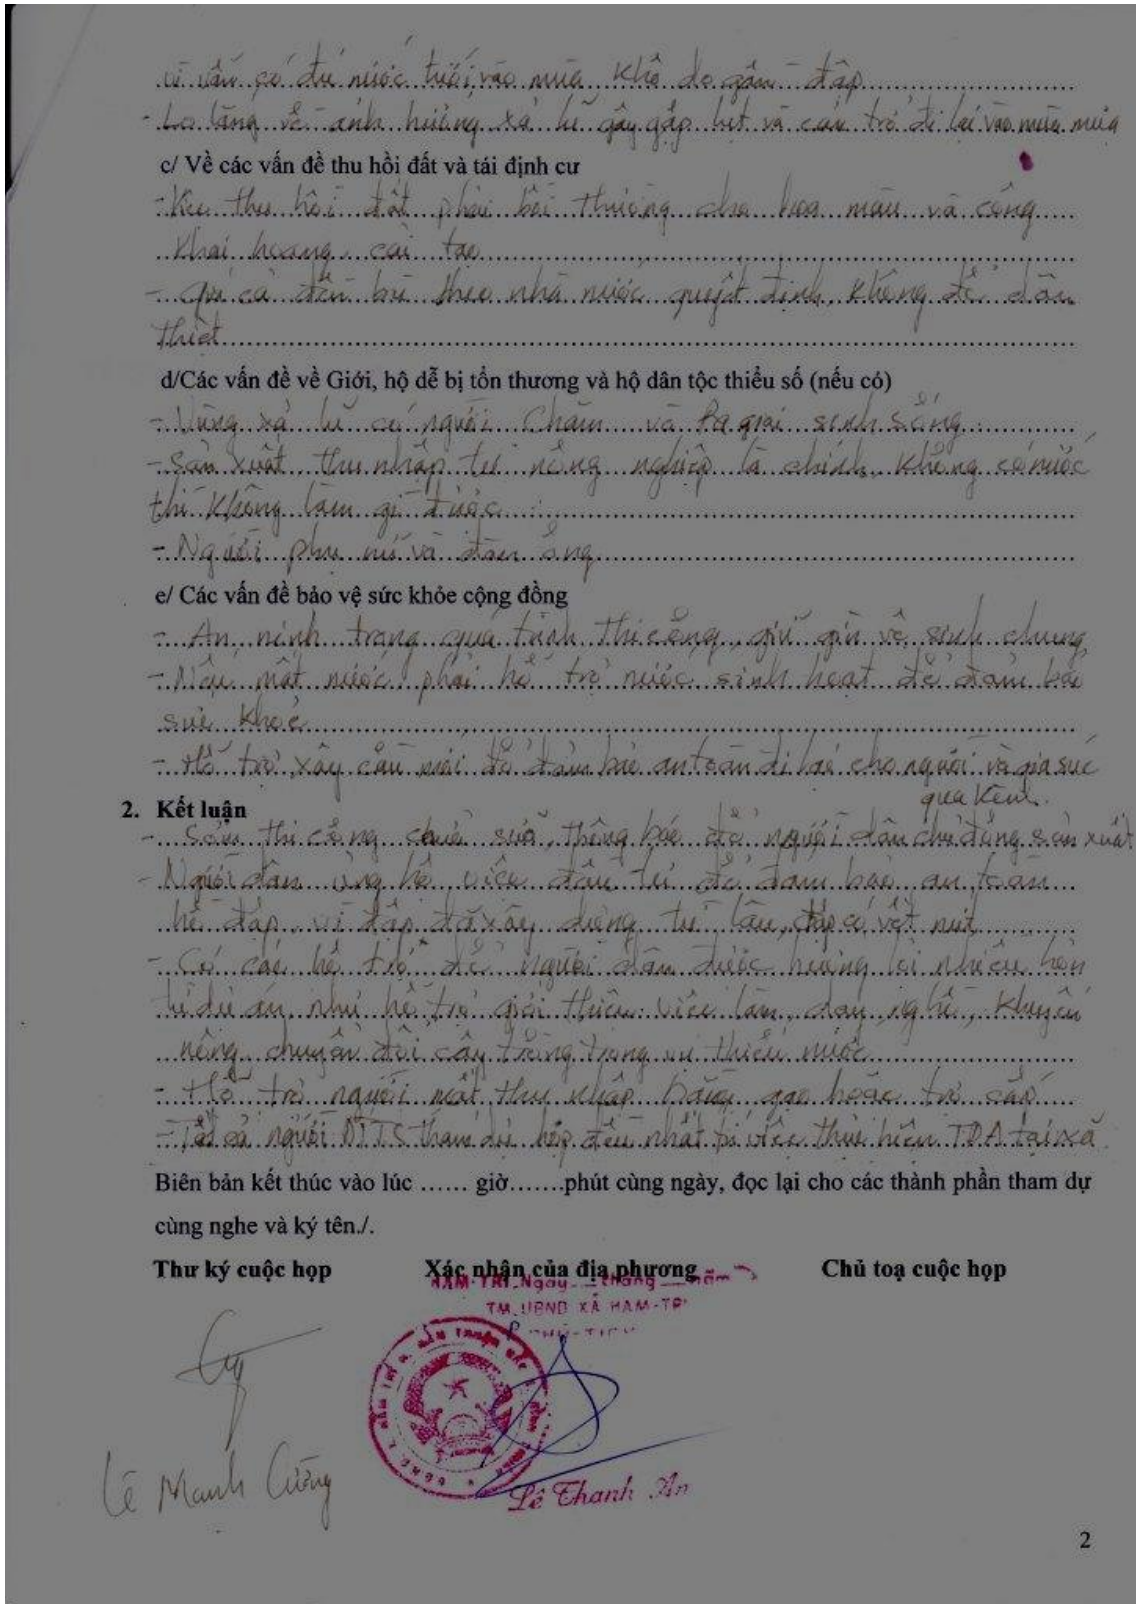 vì vẫn có đủ nước tưới vào mùa khô do gần đập
- Lo lắng về ảnh hưởng xả lũ gây gập lụt và cản trở đi lại vào mùa mưa
c/ Về các vấn đề thu hồi đất và tái định cư
- Khi thu hồi đất phải bồi thường cho hoa màu và công
khai hoang, cải tạo
- Giá cả đền bù theo nhà nước quyết định, không để dân
thiệt
d/Các vấn đề về Giới, hộ dễ bị tổn thương và hộ dân tộc thiểu số (nếu có)
- Vùng xả lũ có người Chăm và Ra giai sinh sống
- Sản xuất thu nhập từ nông nghiệp là chính, không có nước
thì không làm gì được
- Người phụ nữ và đàn ông
e/ Các vấn đề bảo vệ sức khỏe cộng đồng
- An ninh trong quá trình thi công, giữ gìn vệ sinh chung
- Nếu mất nước phải hỗ trợ nước sinh hoạt để đảm bảo
sức khoẻ
- Hỗ trợ xây cầu mới để đảm bảo an toàn đi lại cho người và gia súc
qua kênh.
2. Kết luận
- Sớm thi công sửa, thông báo để người dân chủ động sản xuất
- Người dân ủng hộ việc đầu tư để đảm bảo an toàn
hồ đập, vì đập đã xây dựng từ lâu, đập có vết nứt
- Có các hỗ trợ để người dân được hưởng lợi nhiều hơn
từ dự án như hỗ trợ giới thiệu việc làm, dạy nghề, khuyến
nông, chuyển đổi cây trồng trong vụ thiếu nước
- Hỗ trợ người mất thu nhập bằng gạo hoặc trợ cấp
- Tất cả người DTTS tham dự họp đều nhất trí việc thực hiện TDA tại xã
Biên bản kết thúc vào lúc ...... giờ.......phút cùng ngày, đọc lại cho các thành phần tham dự
cùng nghe và ký tên./.
Thư ký cuộc họp Xác nhận của địa phương Chủ toạ cuộc họp
HÀM-TRÍ, Ngày tháng năm
TM.UBND XÃ HÀM-TRÍ
Lê Mạnh Cường
Lê Thanh An
2